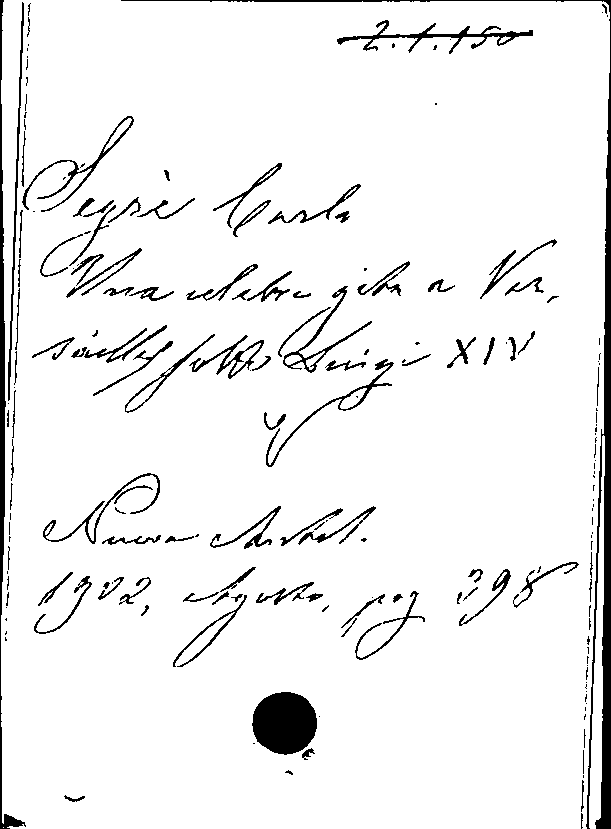 2.1.150
Segrè Carlo
Una celebre gita a Ver,
sailles sotto Luigi XIV
Nuova Antol.
1902, Agosto, pag 398